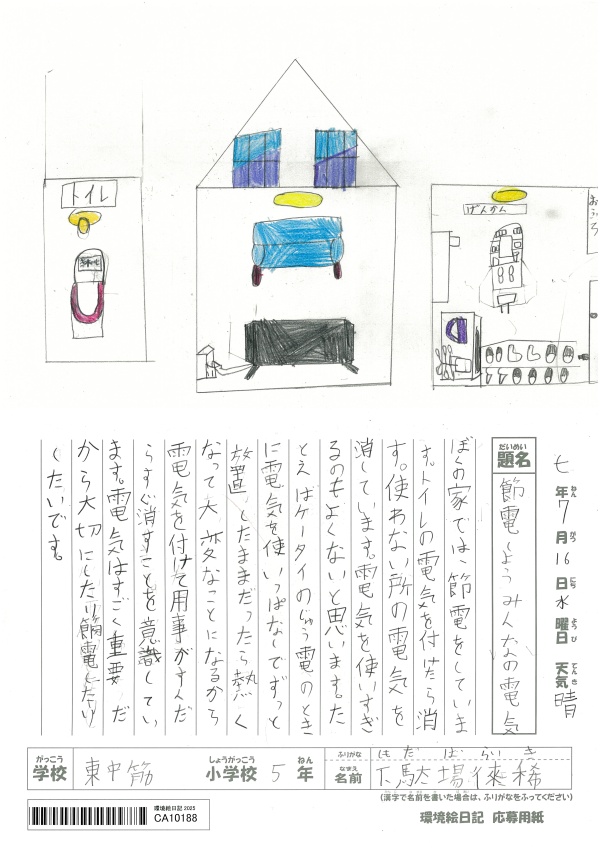 トイレ
げんかん
おふろ
七年7月16日水曜日 天気 晴
ねん がつ にち ようび てんき
だいめい
題名 節電しよう みんなの電気
ぼくの家では、節電をしていま
す。トイレの電気を付けたら消
す。使わない所の電気を
消しています。電気を使いすぎ
るのもよくないと思います。た
とえばケータイのじゅう電のとき
に電気を使いっぱなしでずっと
放置したままだったら熱く
なって大変なことになるから
電気を付けて用事がすんだ
らすぐ消すことを意識してい
ます。電気はすごく重要だ
から大切にしたり節電したり
くたいです。
がっこう
学校 東中筋
しょうがっこう
小学校 5 ねん 年
ふりがな しもだ ば らいき
なまえ
名前 下駄場徠稀
(漢字で名前を書いた場合は、ふりがなをふってください)
環境絵日記 2025
CA10188
環境絵日記 応募用紙